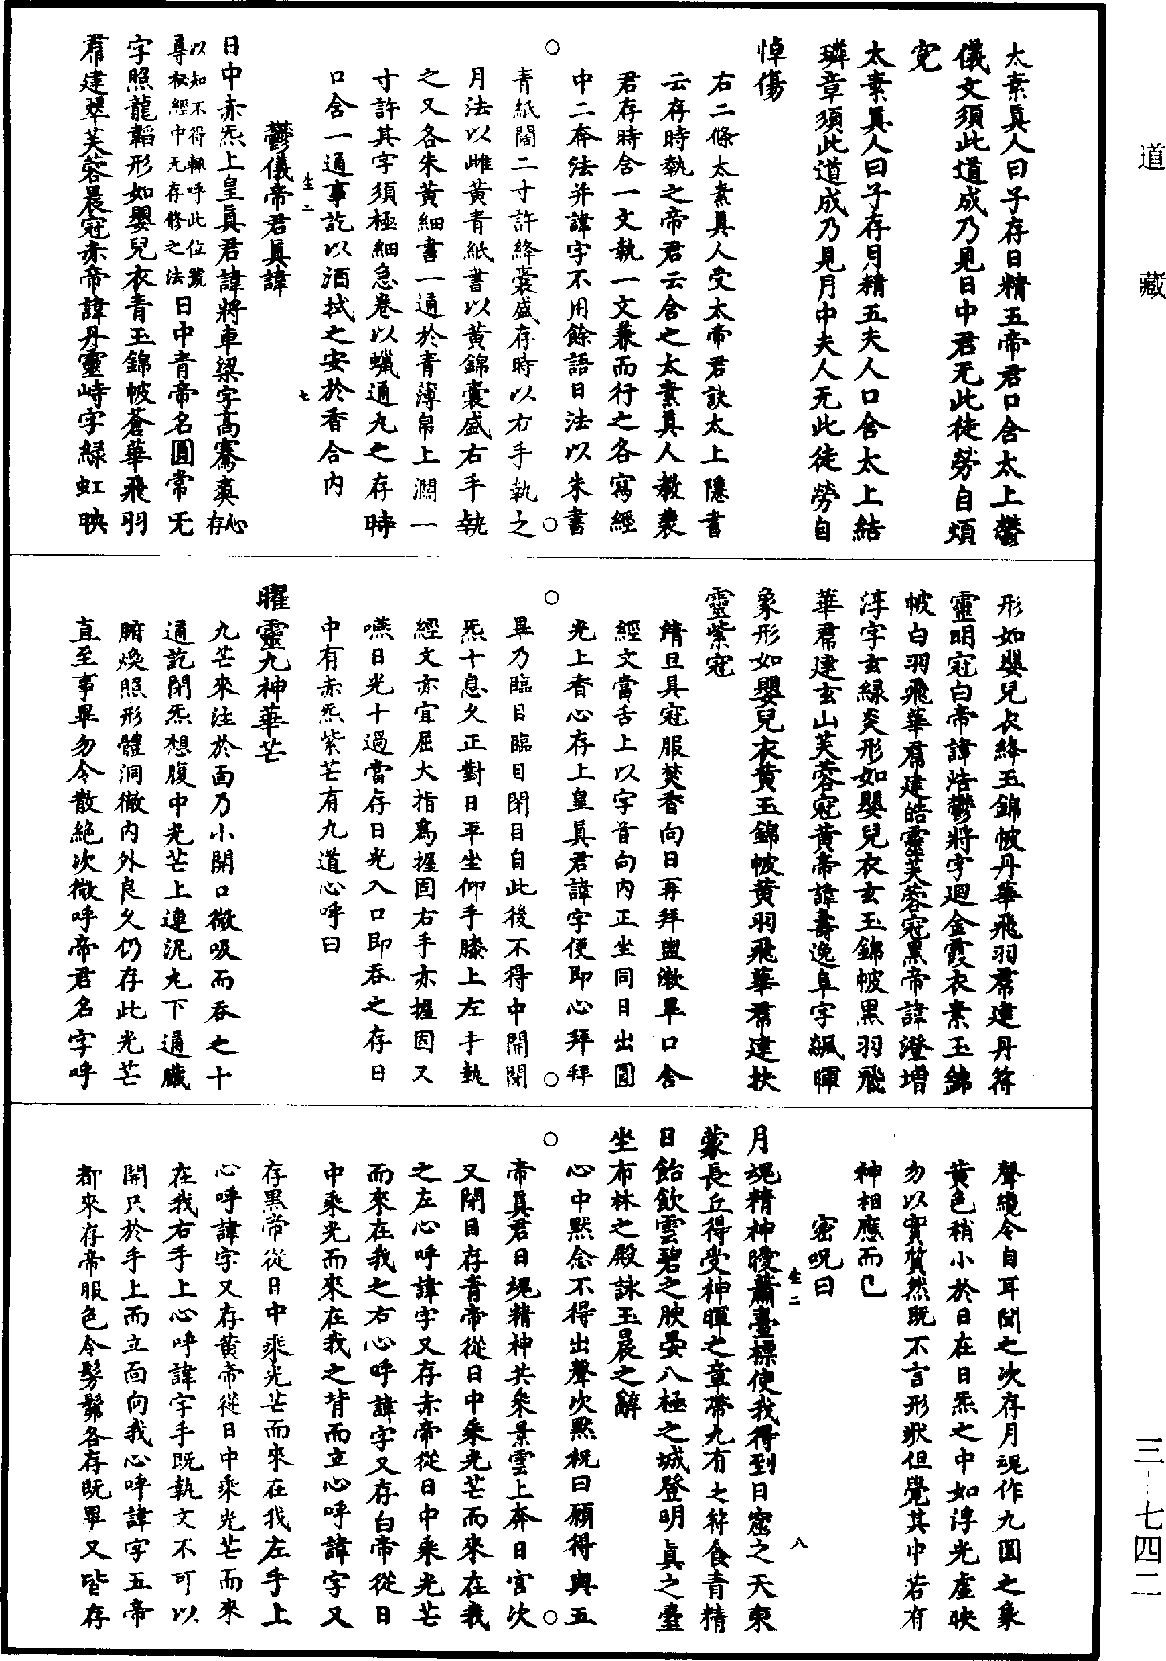 道藏
太素眞人曰子存日精五帝君口含太上鬱
儀文須此道成乃見日中君无此徒勞自煩
寃
太素眞人曰子存月精五夫人口含太上結
璘章須此道成乃見月中夫人无此徒勞自
悼傷
右二條太素眞人受太帝君訣太上隱書
云存時執之帝君云含之太素眞人教裴
君存時含一文執一文兼而行之各寫經
中二奔法并諱字不用餘語日法以朱書
青紙闊二寸許絳囊盛存時以右手執之
月法以雌黃青紙書以黃錦囊盛右手執
之又各朱黃細書一通於青薄帛上濶一
寸許其字須極細急卷以蠟通丸之存時
口含一通事訖以酒拭之安於香合內
鬱儀帝君眞諱
生二 七
日中赤炁上皇眞君諱將車梁字高騫奭心存
以知不得輒呼此位號尊祕經中无存修之法日中青帝名圓常无
字照龍韜形如嬰兒衣青玉錦帔蒼華飛羽
帬建翠芙蓉晨冠赤帝諱丹靈峙字綠虹映
形如嬰兒衣絳玉錦帔丹華飛羽帬建丹符
靈明冠白帝諱浩鬱將字迴金霞衣素玉錦
帔白羽飛華帬建皓靈芙蓉冠黑帝諱澄增
渟字玄綠炎形如嬰兒衣玄玉錦帔黑羽飛
華帬建玄山芙蓉冠黃帝諱壽逸阜字飆暉
象形如嬰兒衣黃玉錦帔黃羽飛華帬建扶
靈紫冠
清旦具冠服焚香向日再拜盥漱畢口含
經文當舌上以字首向內正坐同日出圓
光上香心存上皇眞君諱字便即心拜拜
畢乃臨目臨目閉目自此後不得中開閉
炁十息久正對日平坐仰手膝上左手執
經文亦宜屈大指爲握固右手亦握固又
嚥日光十過當存日光入口即吞之存日
中有赤炁紫芒有九道心呼曰
曜靈九神華芒
九芒來注於面乃小開口微吸而吞之十
過訖閉炁想腹中光芒上連泥丸下通臟
腑煥照形體洞徹內外良久仍存此光芒
直至事畢勿令散絕次微呼帝君名字呼
聲纔令自耳聞之次存月魂作九圓之象
黃色稍小於日在日炁之中如浮光虛映
勿以實質然既不言形狀但覺其中若有
神相應而已
密呪曰
生二 八
月魂精神曖蕭臺標使我得到日窟之天東
蒙長丘得受神暉之章帶九有之符食青精
日飴飲雲碧之腴晏八極之城登明眞之臺
坐布林之殿詠玉晨之辭
心中默念不得出聲次默祝曰願得與五
帝眞君日魂精神共乘景雲上奔日宮次
又閉目存青帝從日中乘光芒而來在我
之左心呼諱字又存赤帝從日中乘光芒
而來在我之右心呼諱字又存白帝從日
中乘光而來在我之背而立心呼諱字又
存黑帝從日中乘光芒而來在我左手上
心呼諱字又存黃帝從日中乘光芒而來
在我右手上心呼諱字手既執文不可以
開只於手上而立面向我心呼諱字五帝
都來存帝服色令髣髴各存既畢又皆存
三-七四二